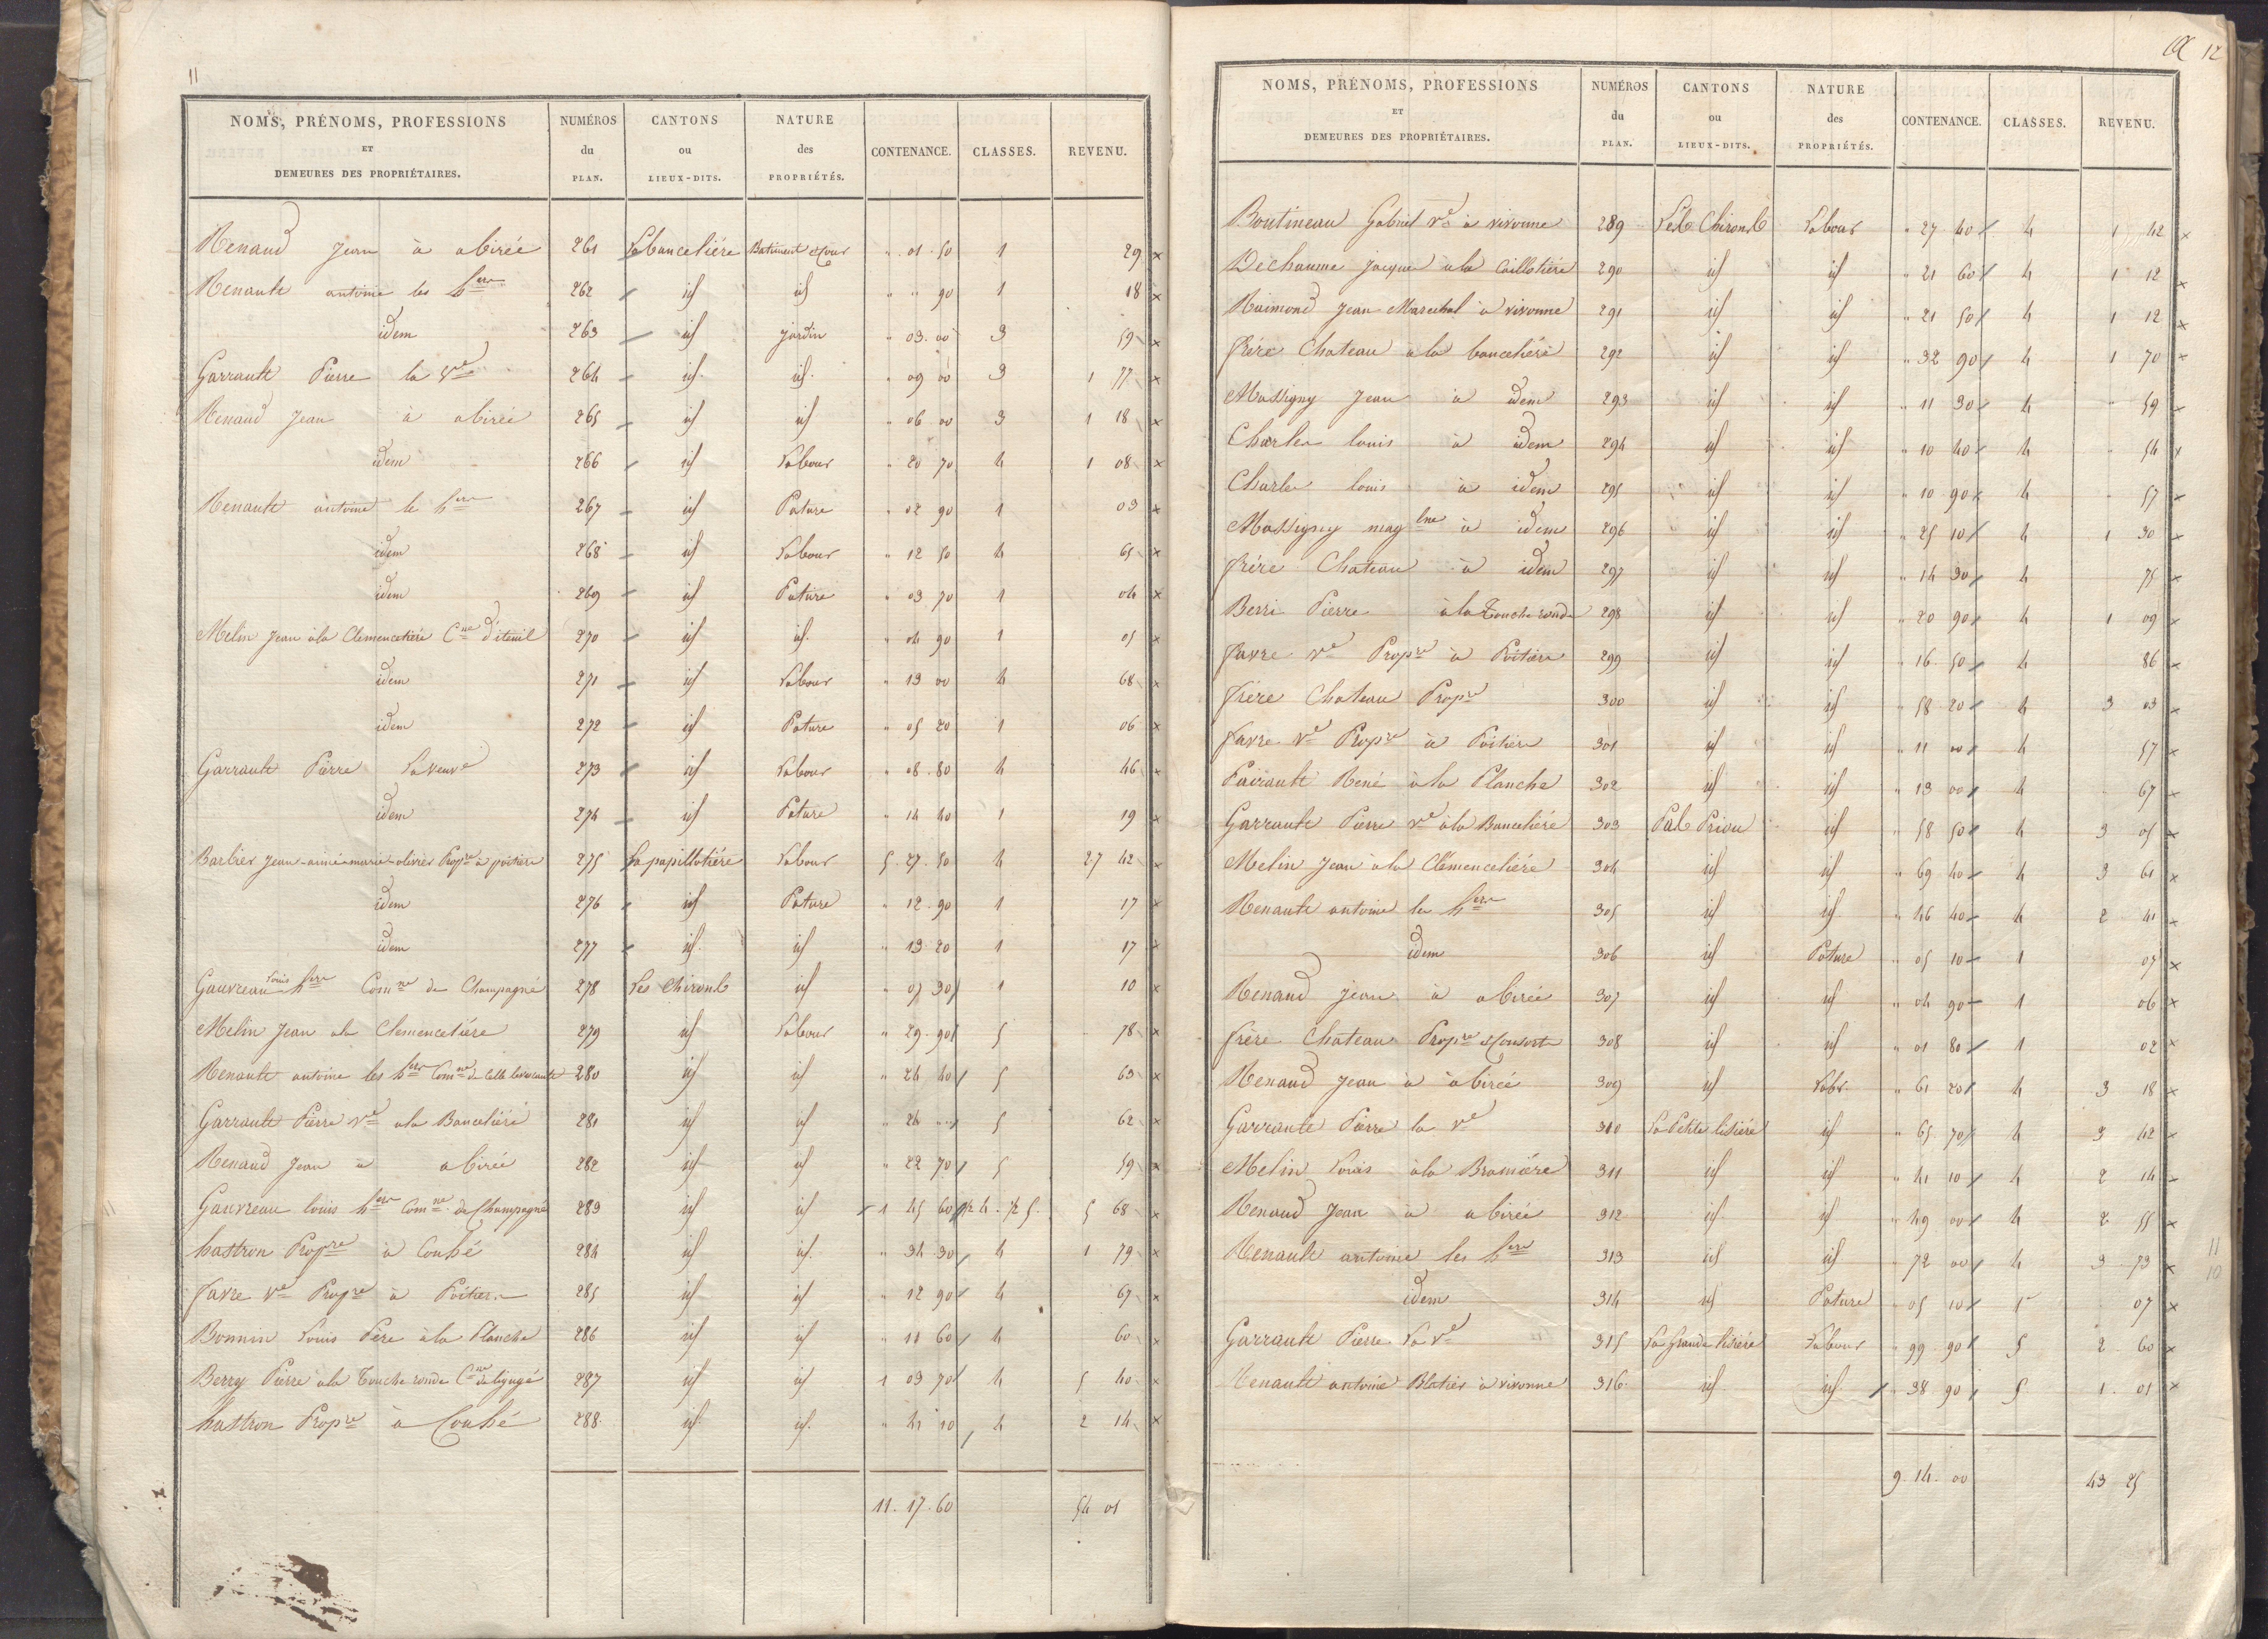 11
NOMS, PRÉNOMS, PROFESSIONS ET DEMEURES DES PROPRIÉTAIRES. | NUMÉROS du PLAN. | CANTONS ou LIEUX-DITS. | NATURE des PROPRIÉTÉS. | CONTENANCE. | CLASSES. | REVENU.
Renaud Jean à abirée 261 Labanceliére Batiment & Cour " 01 50 1 29 x
Renault antoine les hers 262 id id " " 90 1 18 x
idem 263 id jardin " 03. 00 3 59 x
Garrault Pierre la Ve 264 id. id. " 09 00 3 1 77 x
Renaud Jean à abirée 265 id id " 06 00 3 1 18 x
idem 266 id Labour " 20 70 4 1 08 x
Renault antoine le hers 267 id Pature " 02 90 1 03 x
idem 268 id Labour " 12 50 4 65 x
idem 269 id Pature " 03 70 1 04 x
Melin Jean à la Clemencetiére Cne d'iteuil 270 id id. " 04 90 1 05 x
idem 271 id Labour " 13 00 4 68 x
idem 272 id Pature " 05 20 1 06 x
Garrault Pierre La veuve 273 id Labour " 08. 80 4 46 x
idem 274 id Pature " 14 40 1 19 x
Barbier Jean-aimé-marie-olivier Propre à poitiers 275 La papillotiére Labour 5. 27. 50 4 27 42 x
idem 276 id Pature " 12. 90 1 17 x
idem 277 id. id " 13. 20 1 17 x
Gauvreau Louis hers Comne de Champagné 278 Les Chironts id " 07 30 1 10 x
Melin Jean ala Clemencetiére 279 id Labour " 29. 90 5 78 x
Renault antoine les hers Comne de Celle levescault 280 id id " 24 40 5 63 x
Garrault Pierre Ve ala Banceliére 281 id id " 24 " 5 62 x
Renaud Jean à abirée 282 id id " 22 70 5 59 x
Gauvreau louis hers Comne de Champagné 283 id id 1 45 60 1/2 4. 1/2 5. 5 68 x
hastron Propre à Couhé 284 id id. " 34 30 4 1 79 x
favre Ve Propre à Poitiers 285 id id " 12 90 4 67 x
Bonnin Louis Père à la Planche 286 id id " 11 60 4 60 x
Berry Pierre à la Touche ronde Cne de ligugé 287 id id 1 03 70 4 5 40 x
hastron Propre à Couhé 288. id id. " 41 10 4 2 14 x
11. 17. 60 54 01
12
NOMS, PRÉNOMS, PROFESSIONS ET DEMEURES DES PROPRIÉTAIRES. | NUMÉROS du PLAN. | CANTONS ou LIEUX-DITS. | NATURE des PROPRIÉTÉS. | CONTENANCE. | CLASSES. | REVENU.
Boutineau Gabriel Ve à vivonne 289 Les Chironts Labour " 27 40 4 1 42 x
Dechaume Jacques à la Caillotiére 290 id id " 21 60 4 1 12 x
Raimond Jean Marechal à vivonne 291 id id " 21 50 4 1 12 x
frére Chateau à la bancehiére 292 id id " 32 90 4 1 70 x
Massigny Jean à idem 293 id id " 11 30 4 " 59 x
Charles louis à idem 294 id id " 10 40 4 " 54 x
Charles louis à idem 295 id id " 10 90 4 57 x
Massigny maglne à idem 296 id id " 25 10 4 1 30 x
frére Chateau à idem 297 id id " 14 30 4 75 x
Berri Pierre à la Touche ronde 298 id id " 20 90 4 1 09 x
favre Ve Propre à Poitiers 299 id id " 16 50 4 86 x
frére Chateau Propre 300 id id " 58 20 4 3 03 x
favre Ve Propre à Poitiers 301 id id " 11 00 4 57 x
Pairault René à la Planche 302 id id " 13 00 4 67 x
Garrault Pierre Ve à la Banceliére 303 Pal Priou id " 58 50 4 3 05 x
Melin Jean à la Clémenceliére 304 id id " 69 40 4 3 61 x
Renault antoine les hers 305 id id " 46 40 4 2 41 x
idem 306 id Pature " 05 10 1 07 x
Renaud Jean à abirée 307 id id " 04 90 1 06 x
frére Chateau Propre & Consorts 308 id id " 01 80 1 02 x
Renaud Jean à abirée 309 id Labr. " 61 20 4 3 18 x
Garrault Pierre la Ve 310 La Petite lisiére id " 65 70 4 3 42 x
Melin Louis à la Bramiére 311 id id " 41 10 4 2 14 x
Renaud Jean à abirée 312 id id " 49 00 4 2 55 x
Renault antoine les hers 313 id id " 72 00 4 3 73 x
11
10
idem 314 id Pature " 05 10 1 07 x
Garrault Pierre La Ve 315 La Grande lisiére Labour " 99 90 5 2 60 x
Renault antoine Blatier à vivonne 316 id id " 38 90 5 1. 01 x
9. 14. 00 43 25